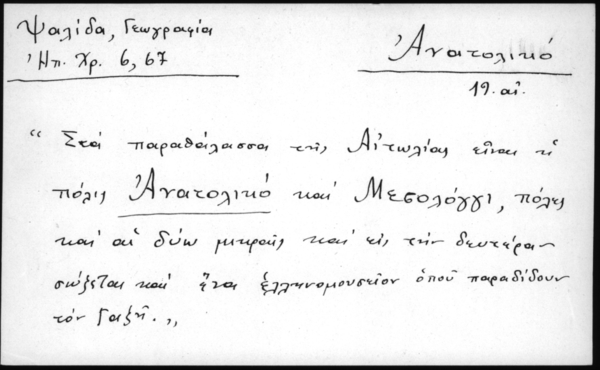 Ψαλίδα, Γεωγραφία
Ἠπ. Χρ. 6, 67
Ἀνατολικό
19. αἰ.
“ Στά παραθάλασσα τῆς Αἰτωλίας εἶναι ἡ
πόλις Ἀνατολικό καί Μεσολόγγι, πόλεις
καί αἱ δύω μικραῖς καί εἰς τήν δευτέραν
σώζεται καί ἕνα ἑλληνομουσεῖον ὁποῦ παραδίδουν
τόν Γαζῆ. „